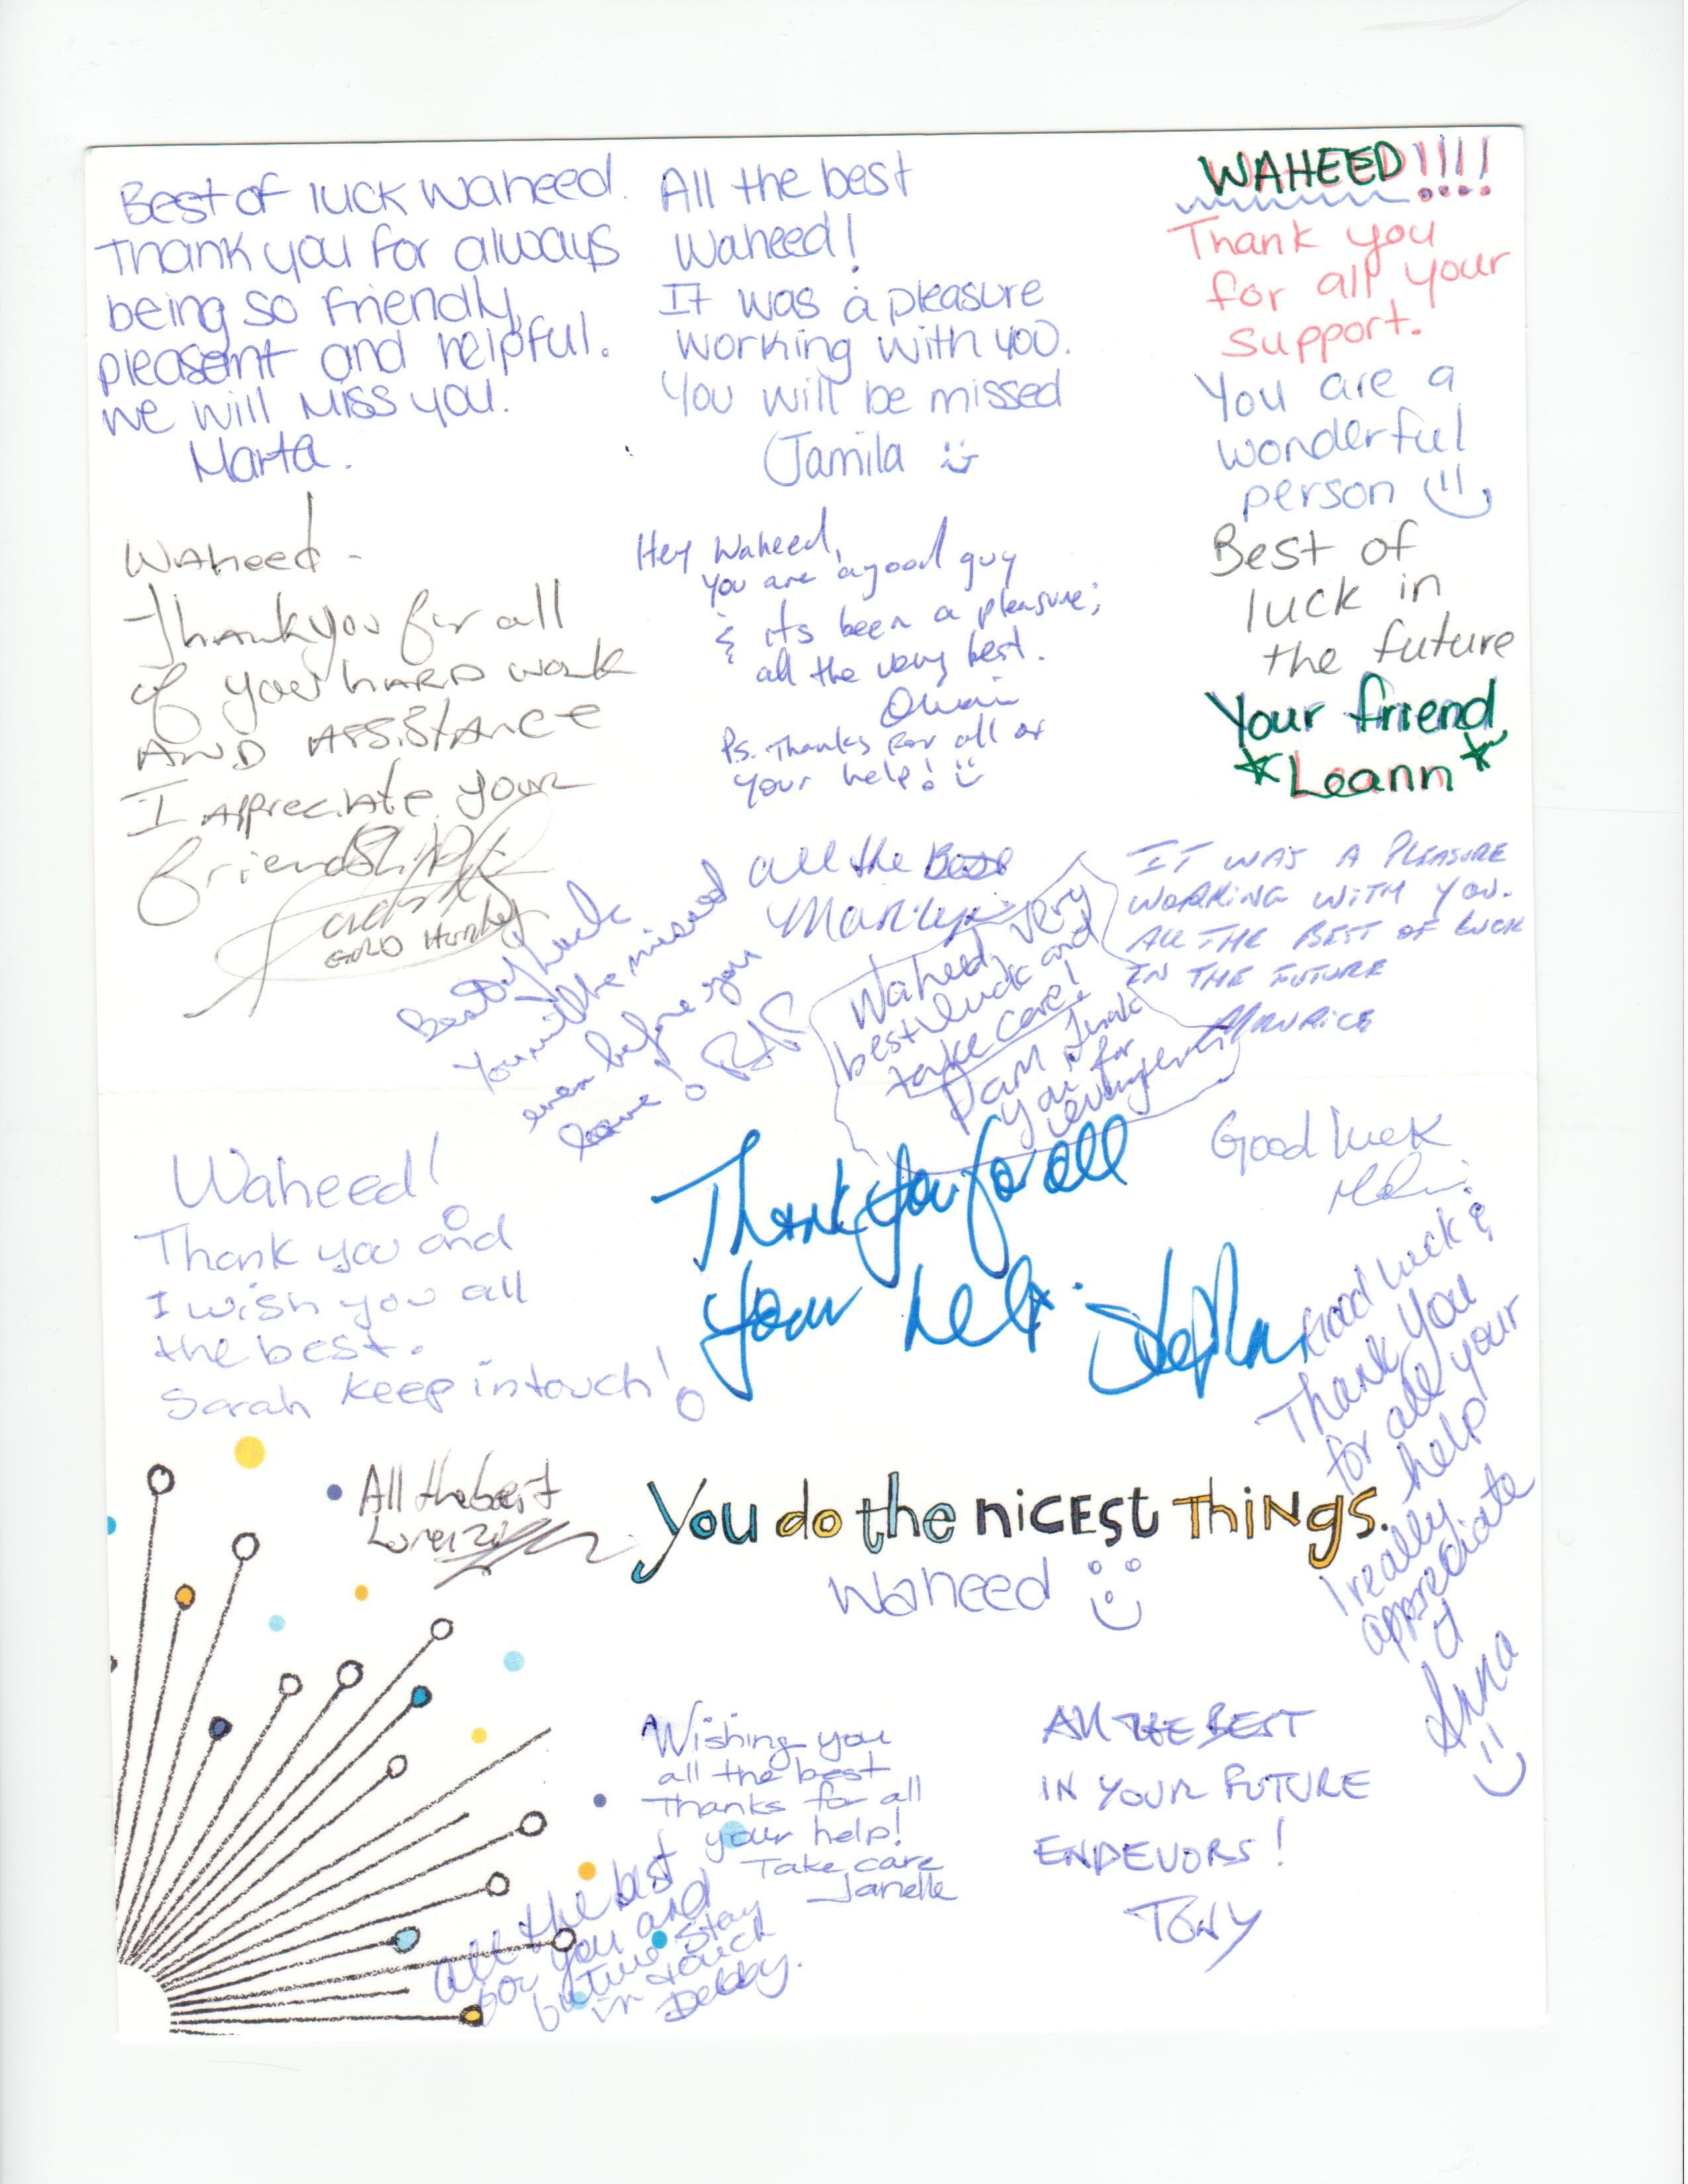 Best of luck Waheed.
Thank you for always
being so friendly,
pleasent and helpful.
we will miss you.
Marta.
All the best
Waheed!
It was a pleasure
working with you.
You will be missed
Jamila
WAHEED!!!!
Thank you
for all your
support.
You are a
wonderful
person
Best of
luck in
the future
Your friend
Leann
Waheed -
Thankyou for all
of your hard work
and assistance
I appreciate your
friendship
Hey Waheed,
you are a good guy
& its been a pleasure;
all the very best.
Ps. Thanks for all of
your help!
Best of luck
You will be missed
even before you
leave!
all the Best
Waheed, very
best luck and
take care!
Pam Thank
you for
IT WAS A PLEASURE
WORKING WITH YOU.
ALL THE BEST OF LUCK
IN THE FUTURE
MAURICE
Waheed!
Thank you and
I wish you all
the best.
Sarah keep in touch!
Thank you for all
your help.
Good luck
Good luck &
Thank you
for all your
help
I really
appreciate
it
Anna
All the best
Lorenzo
You do the nicest things.
Waheed
Wishing you
all the best
Thanks for all
your help!
Take care
Janelle
All the best
for you and
future stay
in touch
Debby.
All THE BEST
IN YOUR FUTURE
ENDEVORS!
TONY